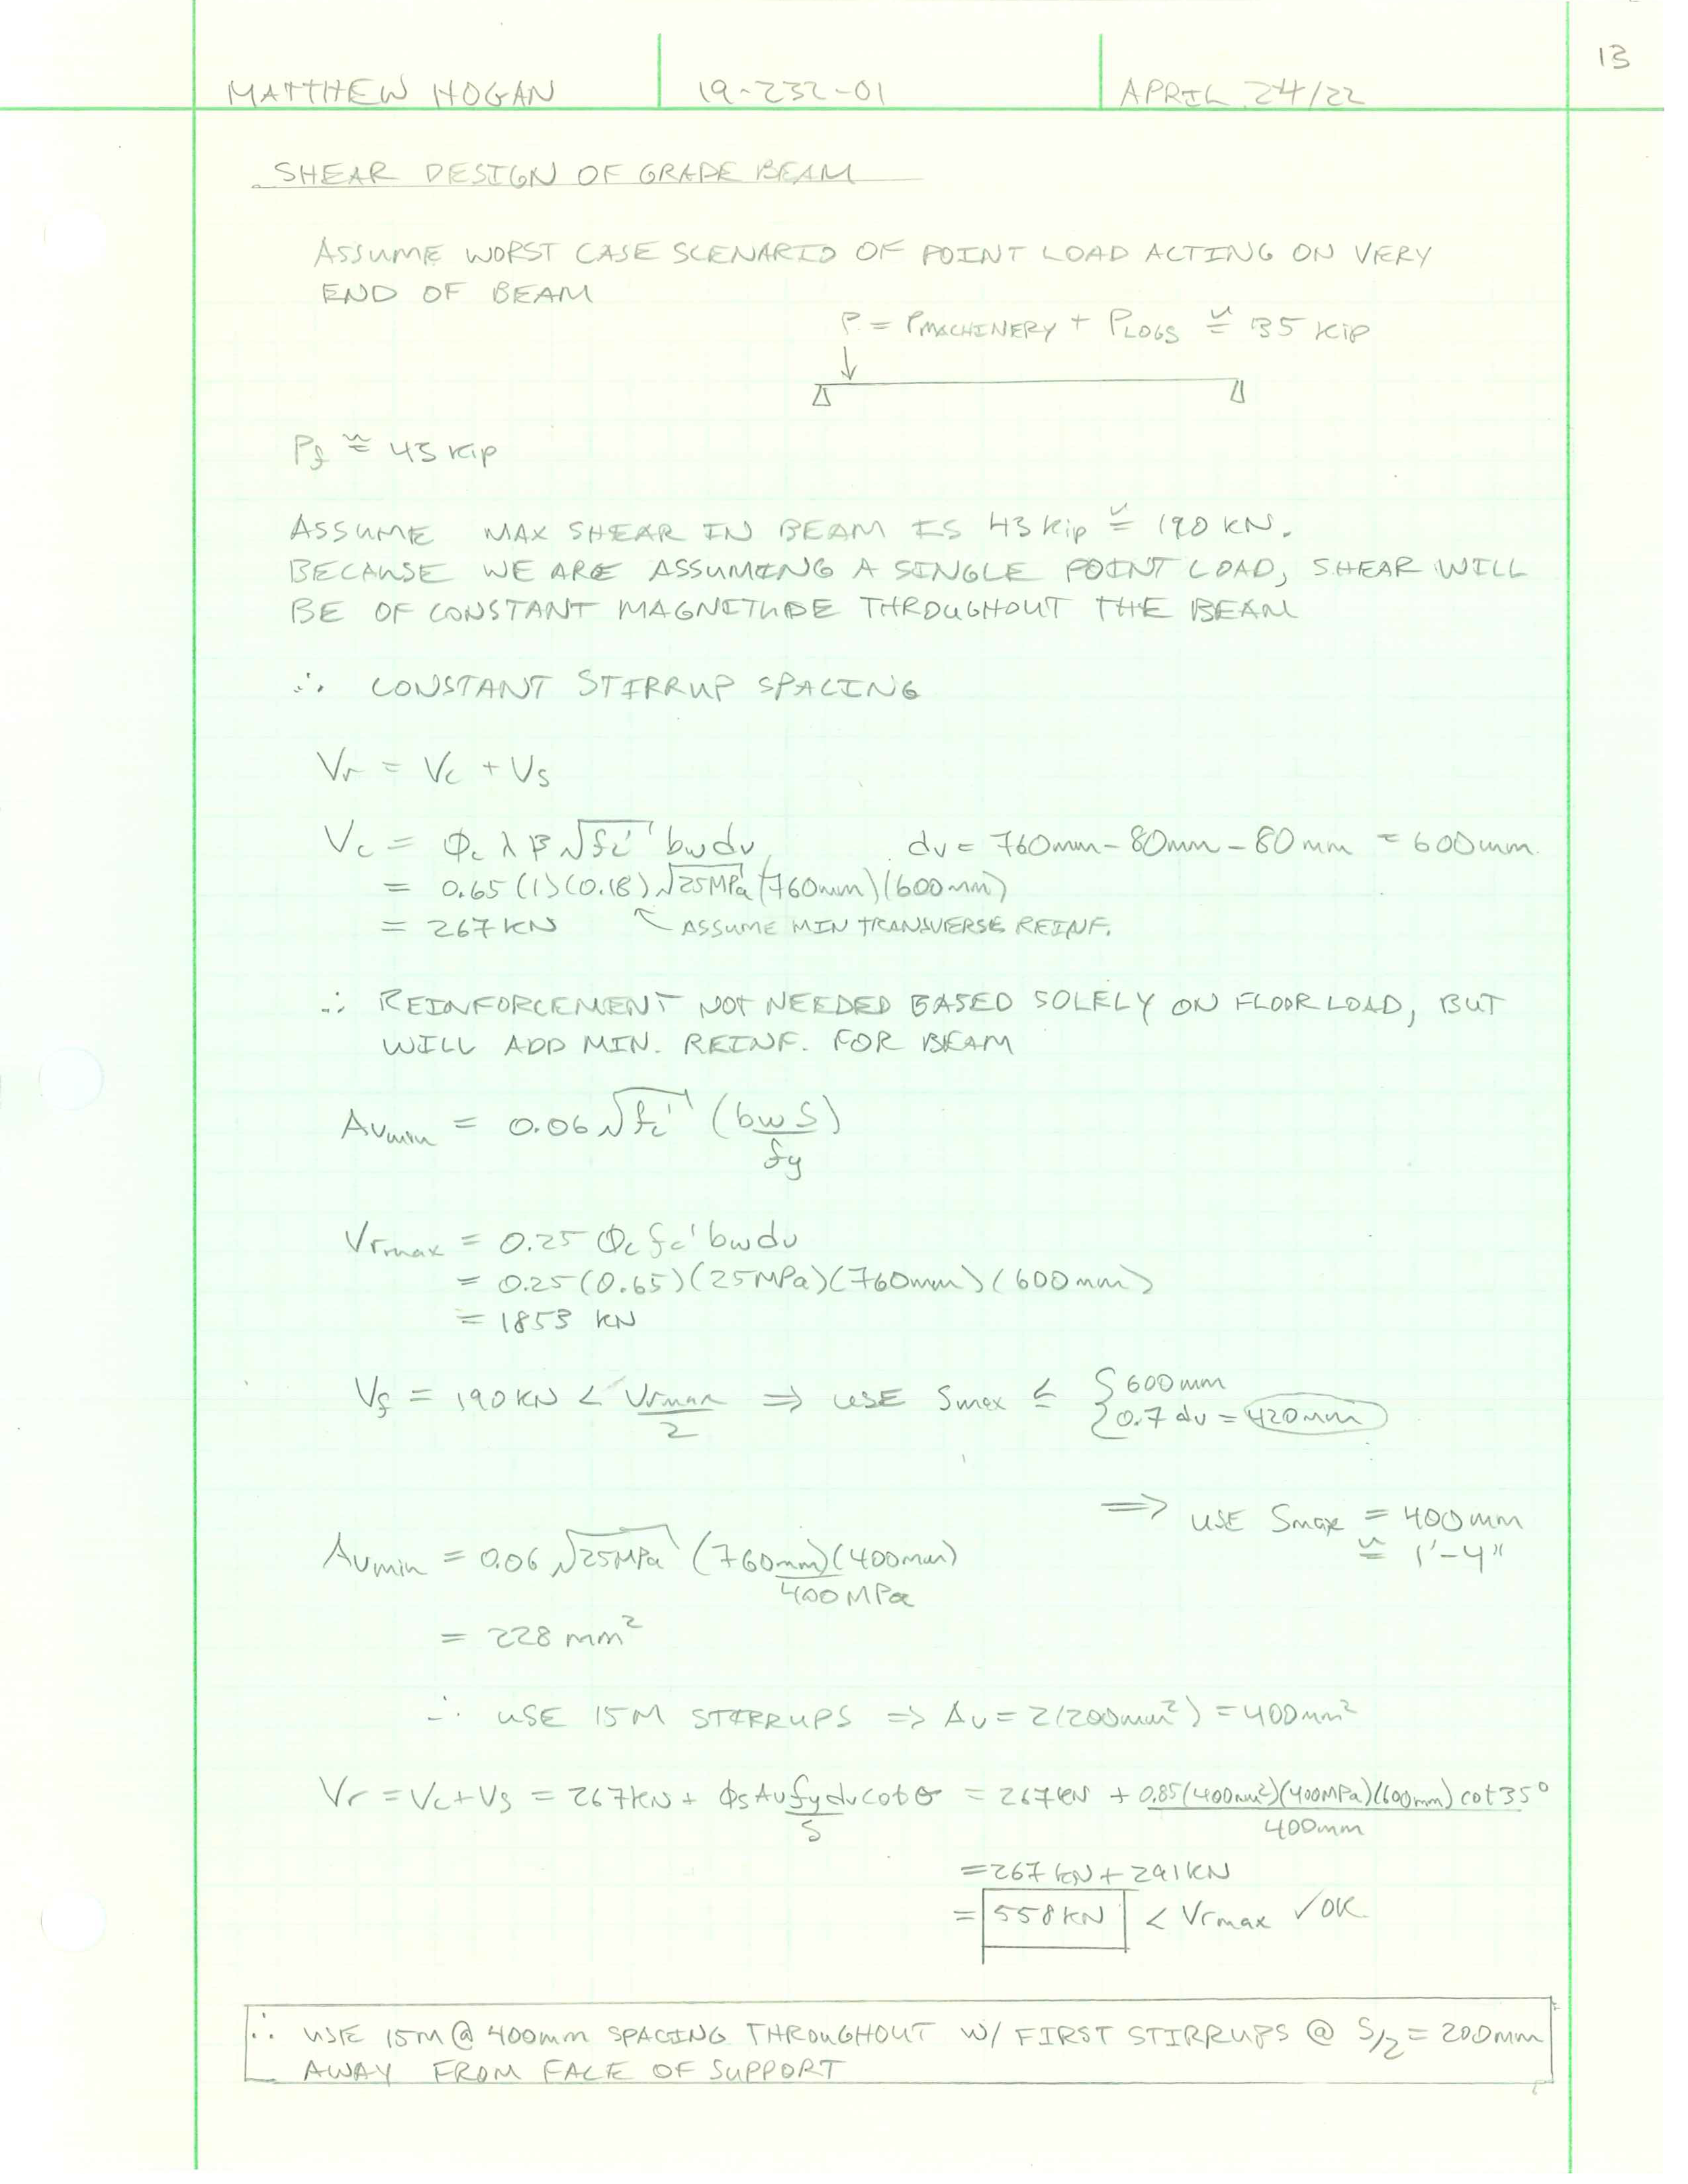 13
MATTHEW HOGAN 19-232-01 APRIL 24/22
SHEAR DESIGN OF GRADE BEAM
ASSUME WORST CASE SCENARIO OF POINT LOAD ACTING ON VERY
END OF BEAM
P = PMACHINERY + PLOGS ≅ 35 kip
Pf ≅ 43 kip
ASSUME MAX SHEAR IN BEAM IS 43 kip ≅ 190 kN.
BECAUSE WE ARE ASSUMING A SINGLE POINT LOAD, SHEAR WILL
BE OF CONSTANT MAGNITUDE THROUGHOUT THE BEAM
∴ CONSTANT STIRRUP SPACING
Vr = Vc + Vs
Vc = Φc λ β √fc' bw dv dv = 760mm - 80mm - 80mm = 600mm
= 0.65 (1) (0.18) √25MPa (760mm) (600mm)
= 267 kN ↖ ASSUME MIN TRANSVERSE REINF.
∴ REINFORCEMENT NOT NEEDED BASED SOLELY ON FLOOR LOAD, BUT
WILL ADD MIN. REINF. FOR BEAM
Avmin = 0.06 √fc' (bw S)
fy
Vrmax = 0.25 Φc fc' bw dv
= 0.25 (0.65) (25MPa) (760mm) (600mm)
= 1853 kN
Vf = 190 kN < Vrmax ⇒ USE Smax ≤ { 600mm
2 0.7 dv = 420mm
⇒ USE Smax = 400mm
≅ 1'-4"
Avmin = 0.06 √25MPa (760mm) (400mm)
400 MPa
= 228 mm²
∴ USE 15M STIRRUPS ⇒ Av = 2(200mm²) = 400mm²
Vr = Vc + Vs = 267kN + Φs Av fy dv cot θ = 267kN + 0.85 (400mm²)(400MPa)(600mm) cot 35°
S 400mm
= 267 kN + 291 kN
= 558 kN < Vrmax ✓OK
∴ USE 15M @ 400mm SPACING THROUGHOUT W/ FIRST STIRRUPS @ S/2 = 200mm
AWAY FROM FACE OF SUPPORT